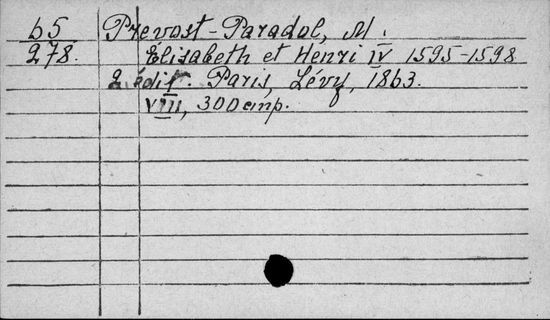 65 Prevost-Paradol, M.
278. Elisabeth et Henri IV 1595-1598
2 édit. Paris, Lévy, 1863.
VIII, 300 стр.